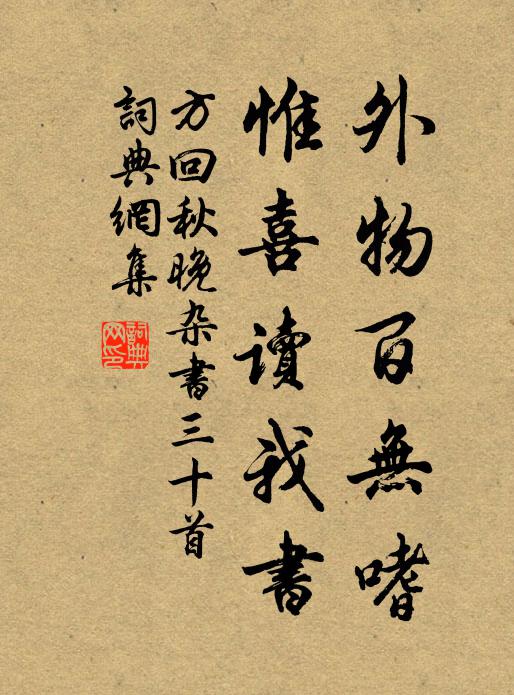 外物百無嗜
惟喜讀我書
方回秋晚杂書三十首
詞典網集
詞典網印